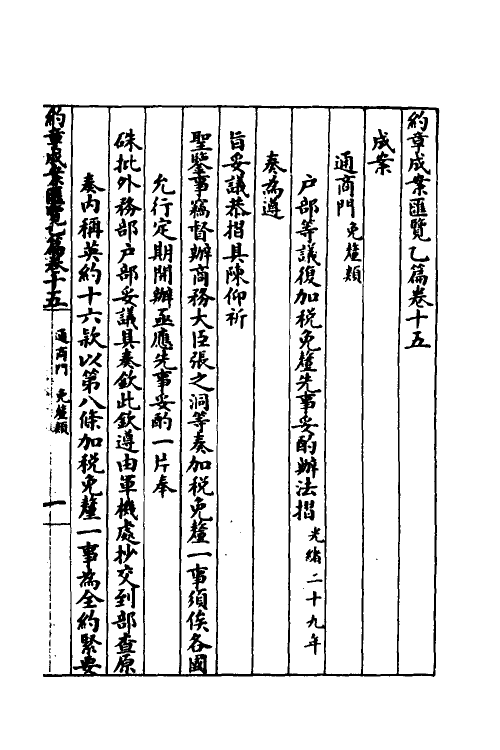 約章成案匯覽乙篇卷十五
成案
通商門免釐類
戶部等議復加稅免釐先事妥酌辦法摺光緒二十九年
奏為遵
旨妥議恭摺具陳仰祈
聖鑒事竊督辦商務大臣張之洞等奏加稅免釐一事須俟各國
允行定期開辦亟應先事妥酌一片奉
硃批外務部戶部妥議具奏欽此欽遵由軍機處抄交到部查原
奏內稱英約十六款以第八條加稅免釐一事為全約緊要
約章成案匯覽乙篇卷十五
通商門 免釐類
一